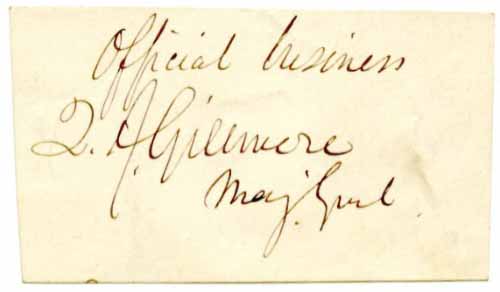 Official business
Q. A. Gillmore
Maj. Genl.